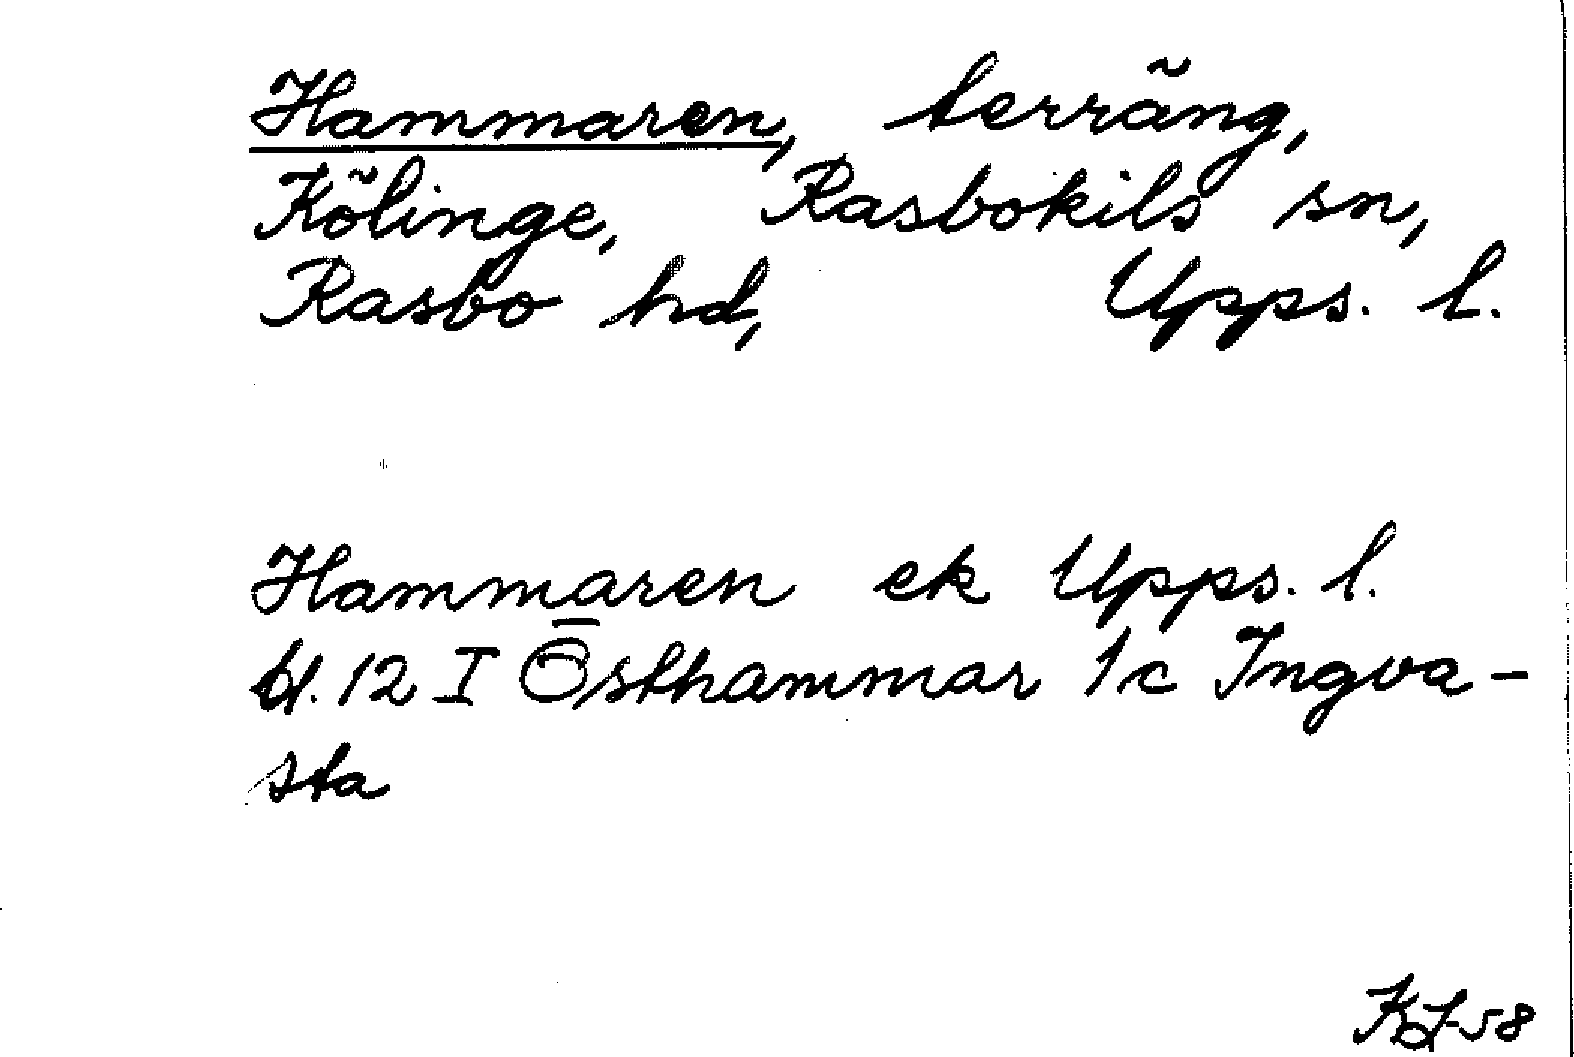 Hammaren, terräng,
Kölinge, Rasbokils sn,
Rasbo hd, Upps. l.
Hammaren ek Upps. l.
bl. 12 I Östhammar 1c Ingva-
sta